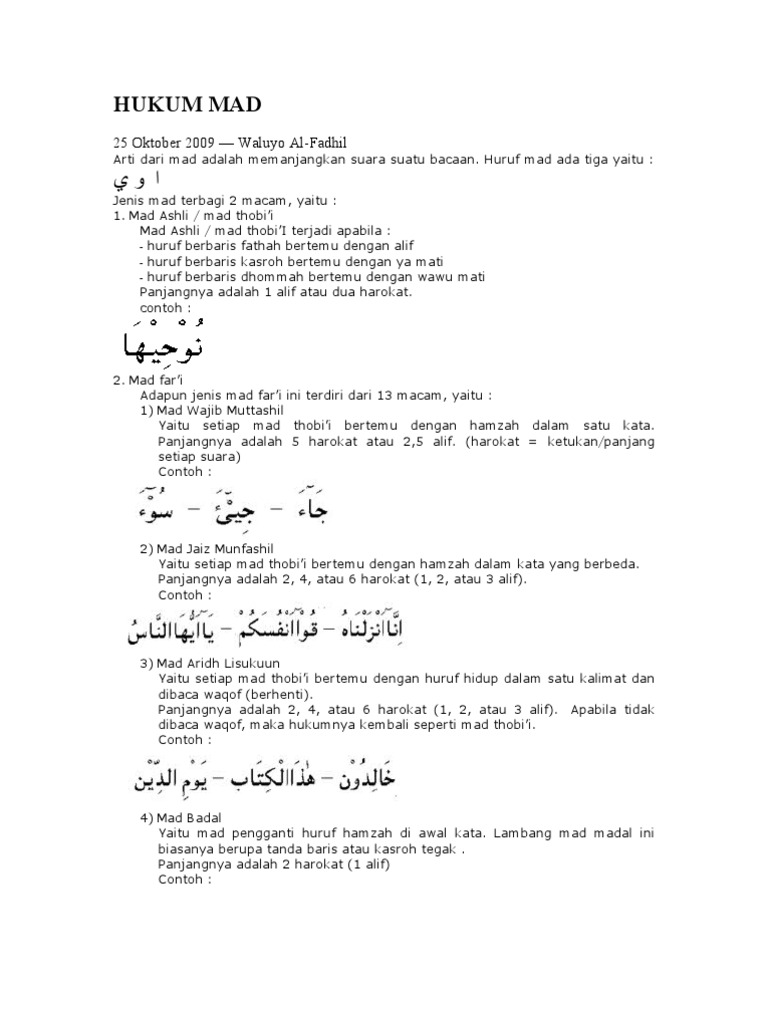 HUKUM MAD
25 Oktober 2009 — Waluyo Al-Fadhil
Arti dari mad adalah memanjangkan suara suatu bacaan. Huruf mad ada tiga yaitu :
ا و ي
Jenis mad terbagi 2 macam, yaitu :
1. Mad Ashli / mad thobi’i
Mad Ashli / mad thobi’I terjadi apabila :
- huruf berbaris fathah bertemu dengan alif
- huruf berbaris kasroh bertemu dengan ya mati
- huruf berbaris dhommah bertemu dengan wawu mati
Panjangnya adalah 1 alif atau dua harokat.
contoh :
نُوْحِيْهَا
2. Mad far’i
Adapun jenis mad far’i ini terdiri dari 13 macam, yaitu :
1) Mad Wajib Muttashil
Yaitu setiap mad thobi’i bertemu dengan hamzah dalam satu kata.
Panjangnya adalah 5 harokat atau 2,5 alif. (harokat = ketukan/panjang
setiap suara)
Contoh :
جَآءَ – جِيْٓئَ – سُوْٓءَ
2) Mad Jaiz Munfashil
Yaitu setiap mad thobi’i bertemu dengan hamzah dalam kata yang berbeda.
Panjangnya adalah 2, 4, atau 6 harokat (1, 2, atau 3 alif).
Contoh :
اِنَّآاَنْزَلْنَاهُ – قُوْآاَنْفُسَكُمْ – يَآاَيُّهَاالنَّاسُ
3) Mad Aridh Lisukuun
Yaitu setiap mad thobi’i bertemu dengan huruf hidup dalam satu kalimat dan
dibaca waqof (berhenti).
Panjangnya adalah 2, 4, atau 6 harokat (1, 2, atau 3 alif). Apabila tidak
dibaca waqof, maka hukumnya kembali seperti mad thobi’i.
Contoh :
خَالِدُوْن – هٰذَاالْكِتَاب – يَوْمِ الدِّيْن
4) Mad Badal
Yaitu mad pengganti huruf hamzah di awal kata. Lambang mad madal ini
biasanya berupa tanda baris atau kasroh tegak .
Panjangnya adalah 2 harokat (1 alif)
Contoh :